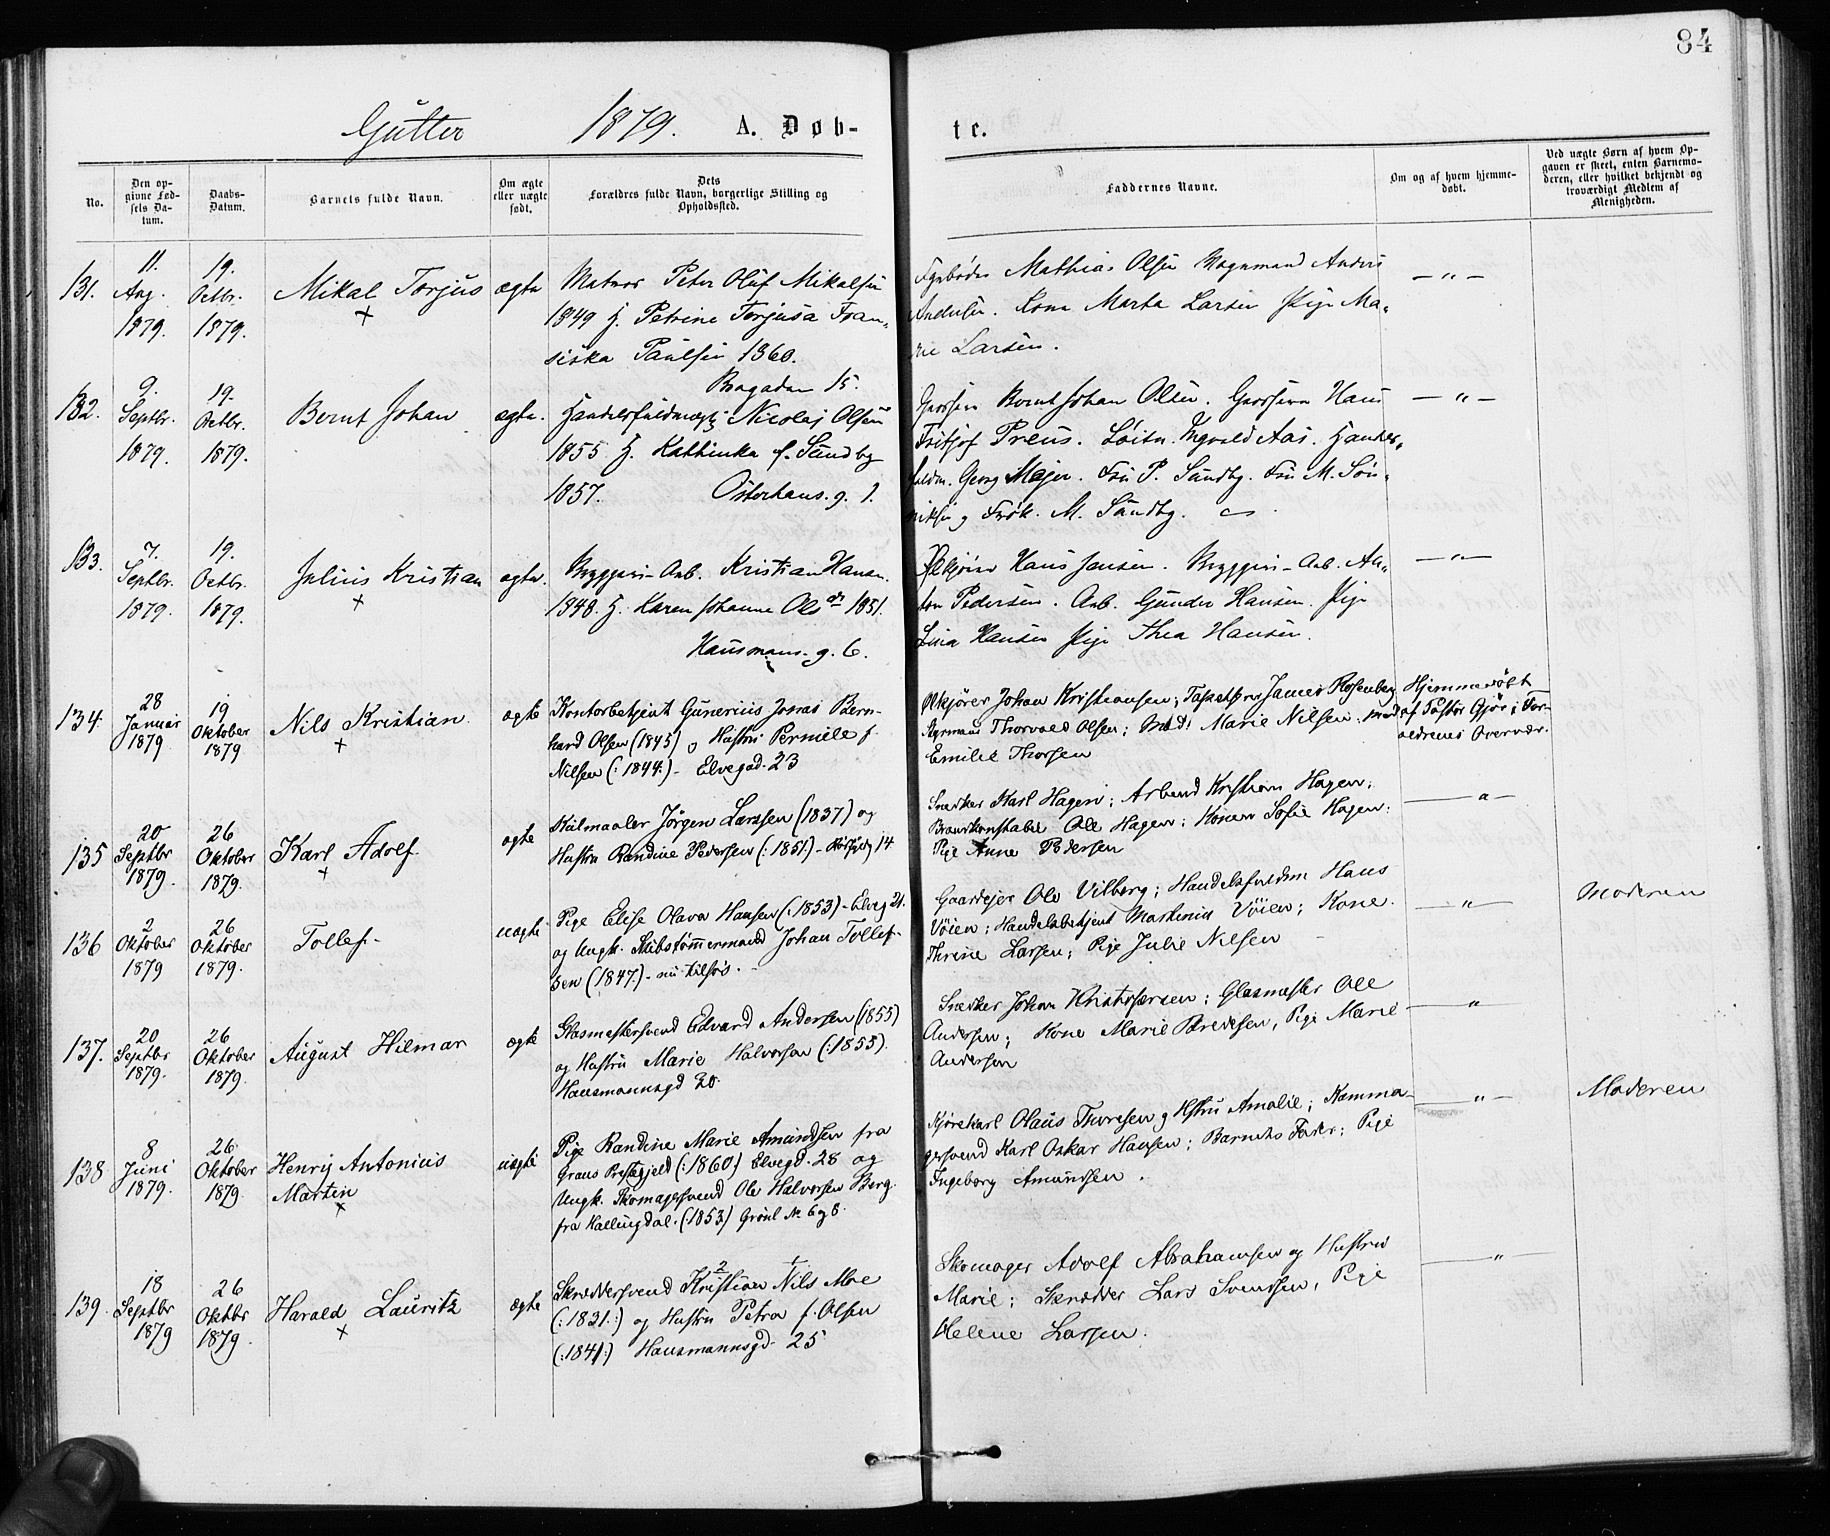 84
Gutter 1879. A. Døb- te.
No.
Den op-
givne Fød-
sels Da-
tum.
Daabs-
Datum.
Barnets fulde Navn.
Om ægte
eller uægte
født.
Dets
Forældres fulde Navn, borgerlige Stilling og
Opholdssted.
Faddernes Navne.
Om og af hvem hjemme-
døbt.
Ved uægte Børn af hvem Op-
gaven er skeet, enten Barnemo-
deren, eller hvilket bekjendt og
troværdigt Medlem af
Menigheden.
131.
11.
Aug.
1879.
19.
Octbr.
1879.
Mikal Torjus
+
ægte
Matros Peter Oluf Mikalsen
1849 H. Petrine Torjusa Fran-
siska Paulsen 1860.
Bragadan 15.
Fyrbøder Mathias Olsen Vognmand Anders
Andersen. Kone Marta Larsen Pige Ma-
rie Larsen.
— „ —
132.
9.
Septbr.
1879.
19.
Octbr.
1879.
Bernt Johan
ægte.
Handelsfuldmægt. Nicolaj Olsen
1855 H. Kathinka f. Sundby
1857. Osterhaus. g. 1.
Grosserer Bernt Johan Olsen. Grosserer Hans
Fritjof Preus. Løitn. Ingvald Aas. Handels-
fuldm. Georg Majer. Fru P. Sundby. Fru M. Søn-
niksen og Frøk. M. Sundby.
— „ —
133.
7.
Septbr.
1879.
19.
Octbr.
1879.
Julius Kristian
+
ægte.
Bryggeri-Arb. Kristian Hansen.
1848. H. Karen Johanne Olsdr 1851.
Hausmans. g. 6.
Ølkjører Hans Jansen. Bryggeri-Arb. An-
ton Pedersen. Arb. Gunder Hansen. Pige
Lina Hansen Pige Thea Hansen.
— „ —
134.
28
Januar
1879
19
Oktober
1879
Nils Kristian.
+
ægte
Kontorbetjent Gunerius Jonas Bern-
hard Olsen (1845) og Hustru Pernille f.
Nilsen (:1844:)- Elvegad. 23
Ølkjører Johan Kristiansen; Tapetserer James Rosenberg
Styrmand Thorvald Olsen; Mad. Marie Nilsen. Mad.
Emilie Thorsen
Hjemmedøbt
af Pastor Gjør i For-
ældrenes Overvær.
135
20
Septbr
1879.
26
Oktober
1879.
Karl Adolf
+
ægte
Hulmaaler Jørgen Larssen (1837) og
Hustru Randine Pedersen (:1851) - 14
Snedker Karl Hagen; Arbemd Kristian Hagen;
Brandkonstabel Ole Hagen; Konen Sofie Hagen;
Pige Anne Pedersen
— „ —
136
2
Oktober
1879
26
Oktober
1879.
Tollef-
uægte
Pige Elise Olava Hansen (:1853) - Elveg 21.
og Ungk. Skibstømmermand Johan Tollef-
sen (1847.) - nu tilsøs.
Gaardejer Ole Vilberg; Handelsfuldm Hans
Vøien; Handelsbetjent Martinius Vøien; Kone
Thrine Larsen; Pige Julie Nilsen -
— „ —
Moderen
137.
20
Septbr
1879.
26
Oktober
1879.
August Hilmar
ægte
Glasmestersvend Edvard Andersen (1855)
og Hustru Marie Halvorsen (:1855).
Hausmannsgd 20.
Snedker Johan Kristofersen; Glasmester Ole
Andersen; Kone Marie Bredesen, Pige Marie
Andersen
— „ —
138
8
Juni
1879.
26
Oktober
1879
Henry Antonius
Martin
+
uægte
Pige Randine Marie Amundsen fra
Grans Prestegjeld (:1860:) Elvegd. 28 og
Ungk. Skomagersvend Ole Halvorsen Berg
fra Hallingdal. (:1853) Grønl № 6 og 8.
Kjørekarl Olaus Thoresen og Hstru Amalie; Kamma-
gersvend Karl Oskar Hansen; Barnets Fader; Pige
Ingeborg Amundsen.
— „ —
Moderen
139.
18
Septbr
1879
26
Oktbr
1879.
Harald Lauritz
+
ægte
Skreddersvend Kristian Nils Moe
(:1831:) og Hustru Petra f. Olsen
(:1841:) Hausmannsgd. 25
Skomager Adolf Abrahamsen og Hustru
Marie; Skredder Lars Svendsen; Pige
Helene Larsen.
— „ —